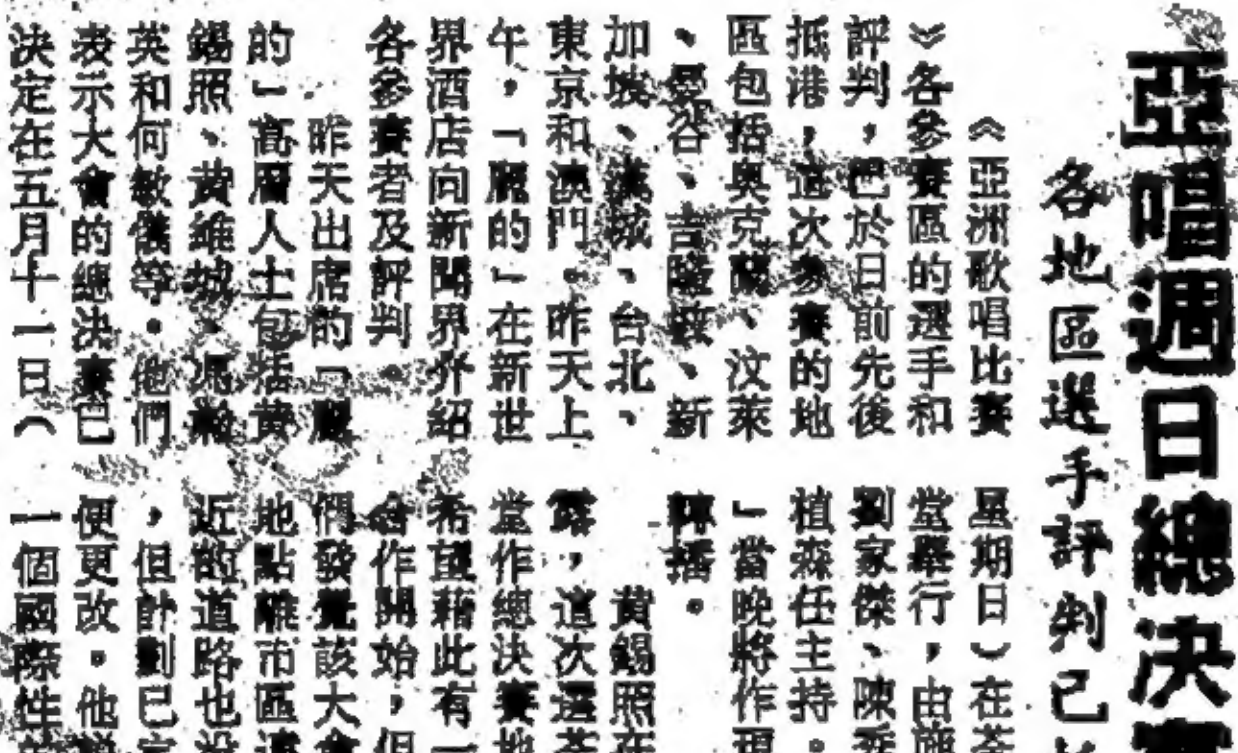 亞唱週日總決
各地區選手評判已
《亞洲歌唱比賽
》各參賽區的選手和
評判，已於日前先後
抵港，這次參賽的地
區包括奧克蘭、汶萊
、曼谷、吉隆坡、新
加坡、漢城、台北、
東京和澳門。昨天上
午，「麗的」在新世
界酒店向新聞界介紹
各參賽者及評判。
昨天出席的「麗
的」高層人士包括黃
錫照、黃維城、馮
英和何敏儀等。他們
表示大會的總決賽已
決定在五月十一日（
星期日）在荃
堂舉行，由鄺
劉家傑、陳秀
植森任主持。
」當晚將作現
轉播。
黃錫照在
露，這次選荃
堂作總決賽地
希望藉此有一
合作開始，但
們發覺該大會
地點離市區遠
近的道路也沒
，但計劃已定
便更改。他說
一個國際性的